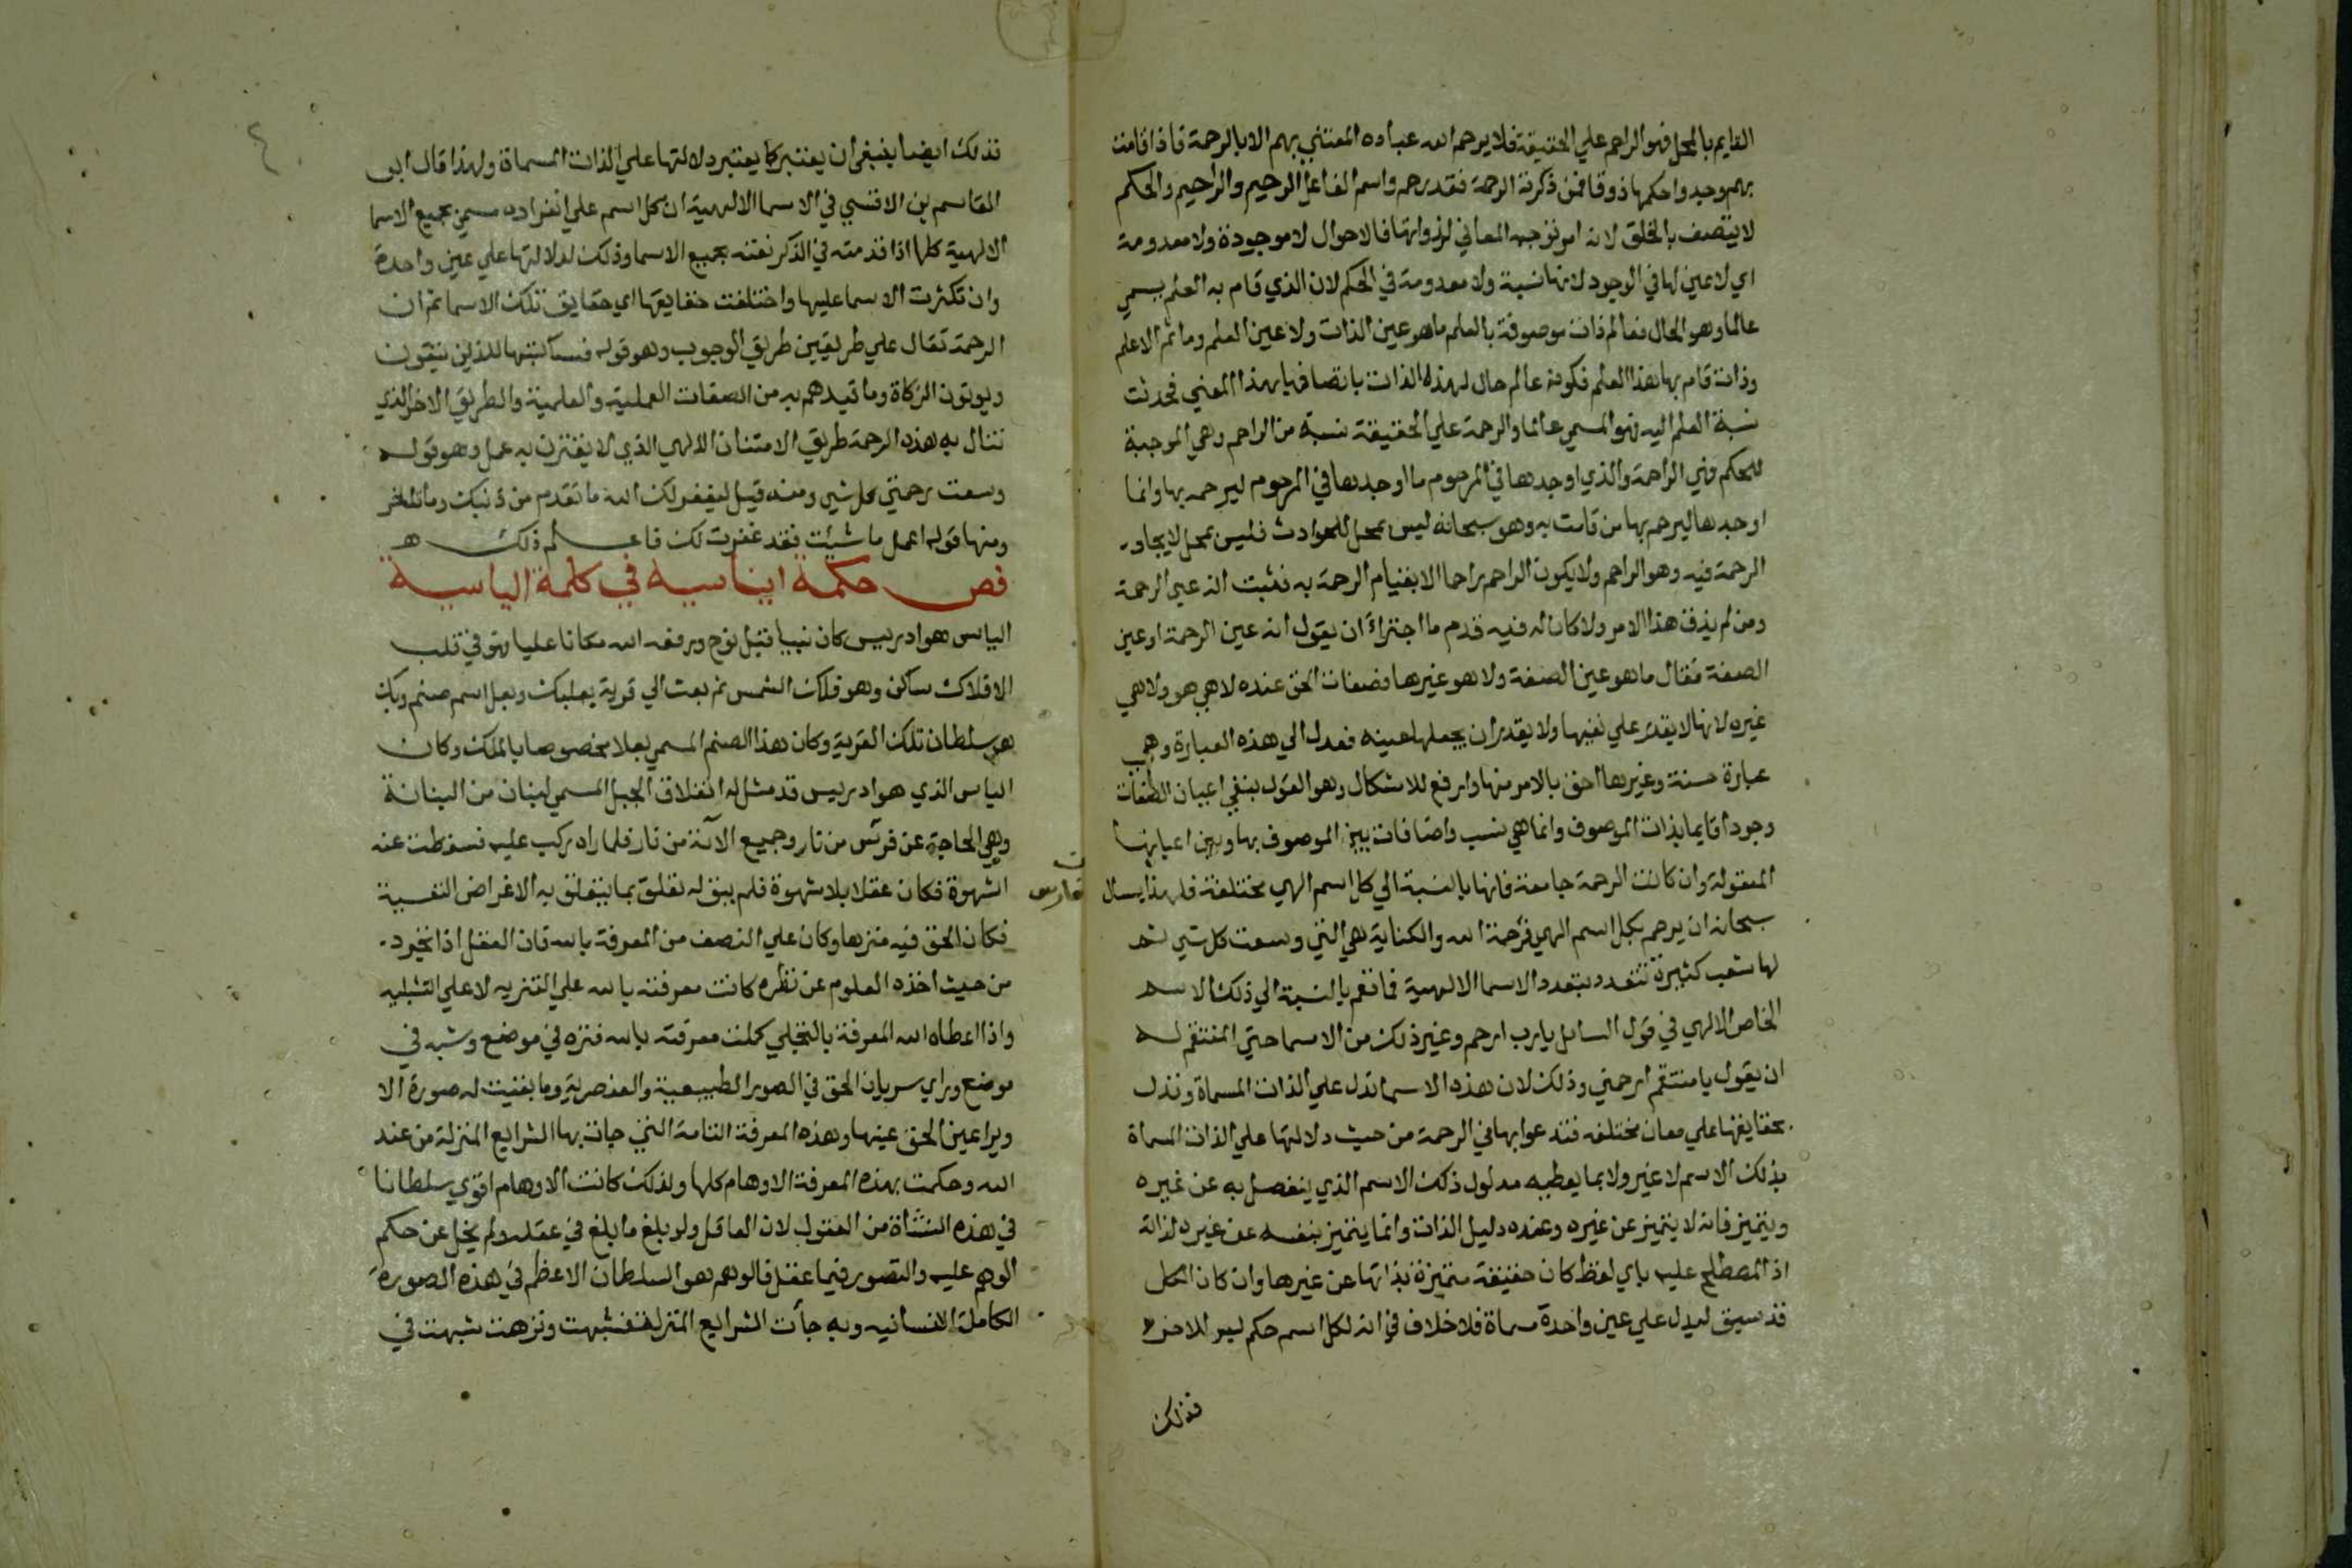 القايم بالمحل فهو الراحم علي الحقيقة فلا يرحم الله عباده المعتني بهم الا بالرحمة فاذا قامت
بهم وجدوا حكمها ذوقا فمن ذكرته الرحمة فقد رحم واسم الفاعل الرحيم والراحيم والحكم
لا يتصف بالخلق لانه امر توجبه المعاني لذواتها فالاحوال لا موجودة ولا معدومة
اي لا عين لها في الوجود لانها نسبة ولا معدومة في الحكم لان الذي قام به العلم يسمي
عالما وهو الحال فعالم ذات موصوفة بالعلم ما هو عين الذات ولا عين العلم وما ثم الا علم
وذات قام بها هذا العلم فكونه عالم حال لهذه الذات باتصافها بهذا المعني فحدثت
نسبة العلم اليه فهو المسمي عالما والرحمة علي الحقيقة نسبة من الراحم وهي الموجبة
للحكم فهي الراحمة والذي اوجدها في المرحوم ما اوجدها في المرحوم ليرحمه بها وانما
اوجدها ليرحم بها من قامت به وهو سبحانه ليس بمحل للحوادث فليس بمحل لايجاد
الرحمة فيه وهو الراحم ولا يكون الراحم راحما الا بقيام الرحمة به فثبت انه عين الرحمة
ومن لم يذق هذا الامر ولا كان له فيه قدم ما اجتراء ان يقول انه عين الرحمة او عين
الصفة فقال ما هو عين الصفة ولا هو غيرها فصفات الحق عنده لا هي هو ولا هي
غيره لانه لا يقدر علي نفيها ولا يقدر ان يجعلها عينه فعدل الي هذه العبارة وهي
عبارة حسنة وغيرها احق بالامر منها وارفع للاشكال وهو القول بنفي اعيان الصفات
وجودا قايما بذات الموصوف وانما هي نسب واضافات بين الموصوف بها وبين اعيانها
المعقولة وان كانت الرحمة جامعة فانها بالنسبة الي كل اسم الهي مختلفة فلهذا يسال
سبحانه ان يرحم بكل اسم الهي فرحمة الله والكناية هي التي وسعت كل شي ثم
لها شعب كثيرة تتعدد بتعدد الاسما الالهية فما تعم بالنسبة الي ذلك الاسم
الخاص الالهي في قول السايل يا رب ارحم وغير ذلك من الاسما حتي المنتقم له
ان يقول يا منتقم ارحمني وذلك لان هذه الاسما تدل علي الذات المسماة وتدل
بحقايقها علي معان مختلفه فتدعوا بها في الرحمة من حيث دلالتها علي الذات المسماة
بذلك الاسم لا غير ولا بما يعطيه مدلول ذلك الاسم الذي ينفصل به عن غيره
ويتميز فانه لا يتميز عن غيره وعنده دليل الذات وانما يتميز بنفسه عن غيره لذاته
اذ المصطلح عليه باي لفظ كان حقيقة متميزة بذاتها عن غيرها وان كان الكل
قد سيق ليدل علي عين واحدة مسماة فلا خلاف في انه لكل اسم حكم ليس للاخر
فذلك
فذلك ايضا ينبغي ان يعتبر كما يعتبر دلالتها علي الذات المسماة ولهذا قال ابي
القاسم بن الاقسي في الاسما الالهية ان كل اسم علي انفراده مسمي بجميع الاسما
الالهية كلها اذا قدمته في الذكر نعته بجميع الاسما وذلك لدلالتها علي عين واحدة
وان تكثرت الاسما عليها واختلفت حقايقها اي حقايق تلك الاسما ثم ان
الرحمة تقال علي طريقين طريق الوجوب وهو قوله فسأكتبها للذين يتقون
ويوتون الزكاة وما قيدهم به من الصفات العملية والعلمية والطريق الاخر الذي
تنال به هذه الرحمة طريق الامتنان الالهي الذي لا يقترن به عمل وهو قوله
وسعت رحمتي كل شي ومنه قيل ليغفر لك الله ما تقدم من ذنبك وما تاخر
ومنها قوله اعمل ما شئت فقد غفرت لك فاعلم ذلك
فص حكمة ايناسية في كلمة الياسية
الياس هو ادريس كان نبيا قبل نوح ورفعه الله مكانا عليا فهو في قلب
الافلاك ساكن وهو فلك الشمس ثم بعث الي قرية بعلبك وبعل اسم صنم وبك
هو سلطان تلك القرية وكان هذا الصنم المسمي بعلا مخصوصا بالملك وكان
الياس الذي هو ادريس قد مثل له انفلاق الجبل المسمي لبنان من اللبنانة
وهي الحاجة عن فرس من نار وجميع الآته من نار فلما راه ركب عليه فسقطت عنه
الشهوة فكان عقلا بلا شهوة فلم يبق له تعلق بما يتعلق به الاغراض النفسية
فكان الحق فيه منزها وكان علي النصف من المعرفة بالله فان العقل اذا تجرد
من حيث اخذه العلوم عن نظره كانت معرفته بالله علي التنزيه لا علي التشبيه
واذا اعطاه الله المعرفة بالتجلي كملت معرفته بالله فنزه في موضع وشبه في
موضع وراي سريان الحق في الصور الطبيعية والعنصرية وما بقيت له صورة الا
ويرا عين الحق عينها وهذه المعرفة التامة التي جات بها الشرايع المنزلة من عند
الله وحكمت بهذه المعرفة الاوهام كلها ولذلك كانت الاوهام اقوي سلطانا
في هذه النشأة من العقول لان العاقل ولو بلغ ما بلغ في عقله ولم يخل عن حكم
الوهم عليه والتصور فيما عقل فالوهم هو السلطان الاعظم في هذه الصورة
الكاملة الانسانيه وبه جأت الشرايع المنزلة فشبهت ونزهت شبهت في